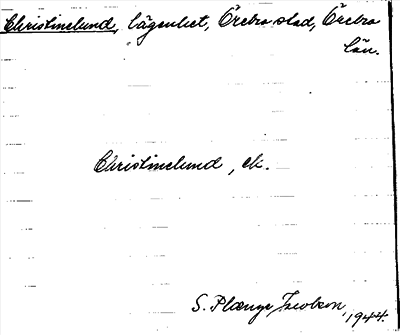 Christinelund, lägenhet, Örebro stad, Örebro
län.
Christinelund, ek.
S. Plænge Jacobsen, 1944.